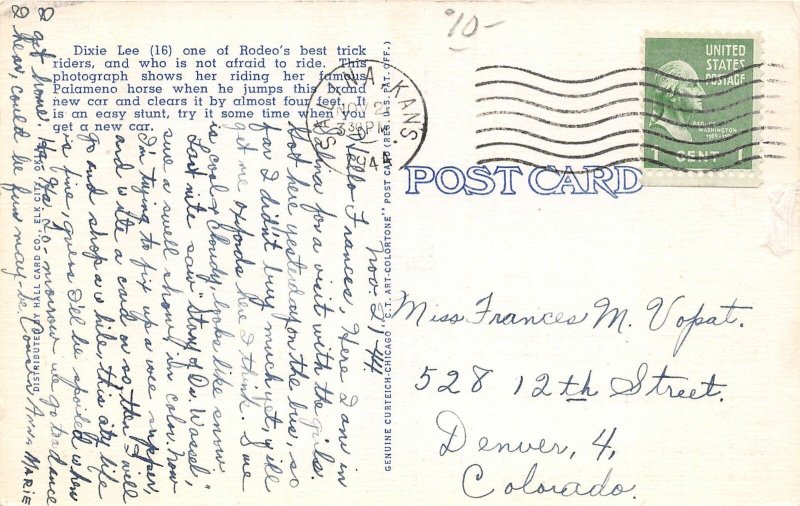 Dixie Lee (16) one of Rodeo's best trick
riders, and who is not afraid to ride. This
photograph shows her riding her famous
Palameno horse when he jumps this brand
new car and clears it by almost four feet. It
is an easy stunt, try it some time when you
get a new car.
DISTRIBUTED BY HALL CARD CO., ELK CITY, OKLA.
GENUINE CURTEICH-CHICAGO "C.T. ART-COLORTONE" POST CARD (REG. U.S. PAT. OFF.)
90-
SALINA, KANS.
NOV 2
330PM
194
UNITED
STATES
POSTAGE
GEORGE
WASHINGTON
1789-1797
1 CENT 1
POST CARD
Nov-21-44.
Hello Frances, Here I am in
Salina for a visit with the girls.
Got here yesterday on the bus, so
far I didn't buy much yet, ill
get me oxfords here I think. Sure
is cool & cloudy, looks like snow
Last nite saw "Story of Dr Wassel",
sure a swell show, in color. Now
I'm trying to fix up a nice supper,
and write a card or so, then I will
go and shop a while, this city life
is fine, guess I'll be spoiled when
I get home. Ha Ha. To-morrow we go to dance
I hear, could be fun may-be. Cousin Anna MARIE
Miss Frances M. Vopat.
528 12th Street.
Denver, 4,
Colorado.